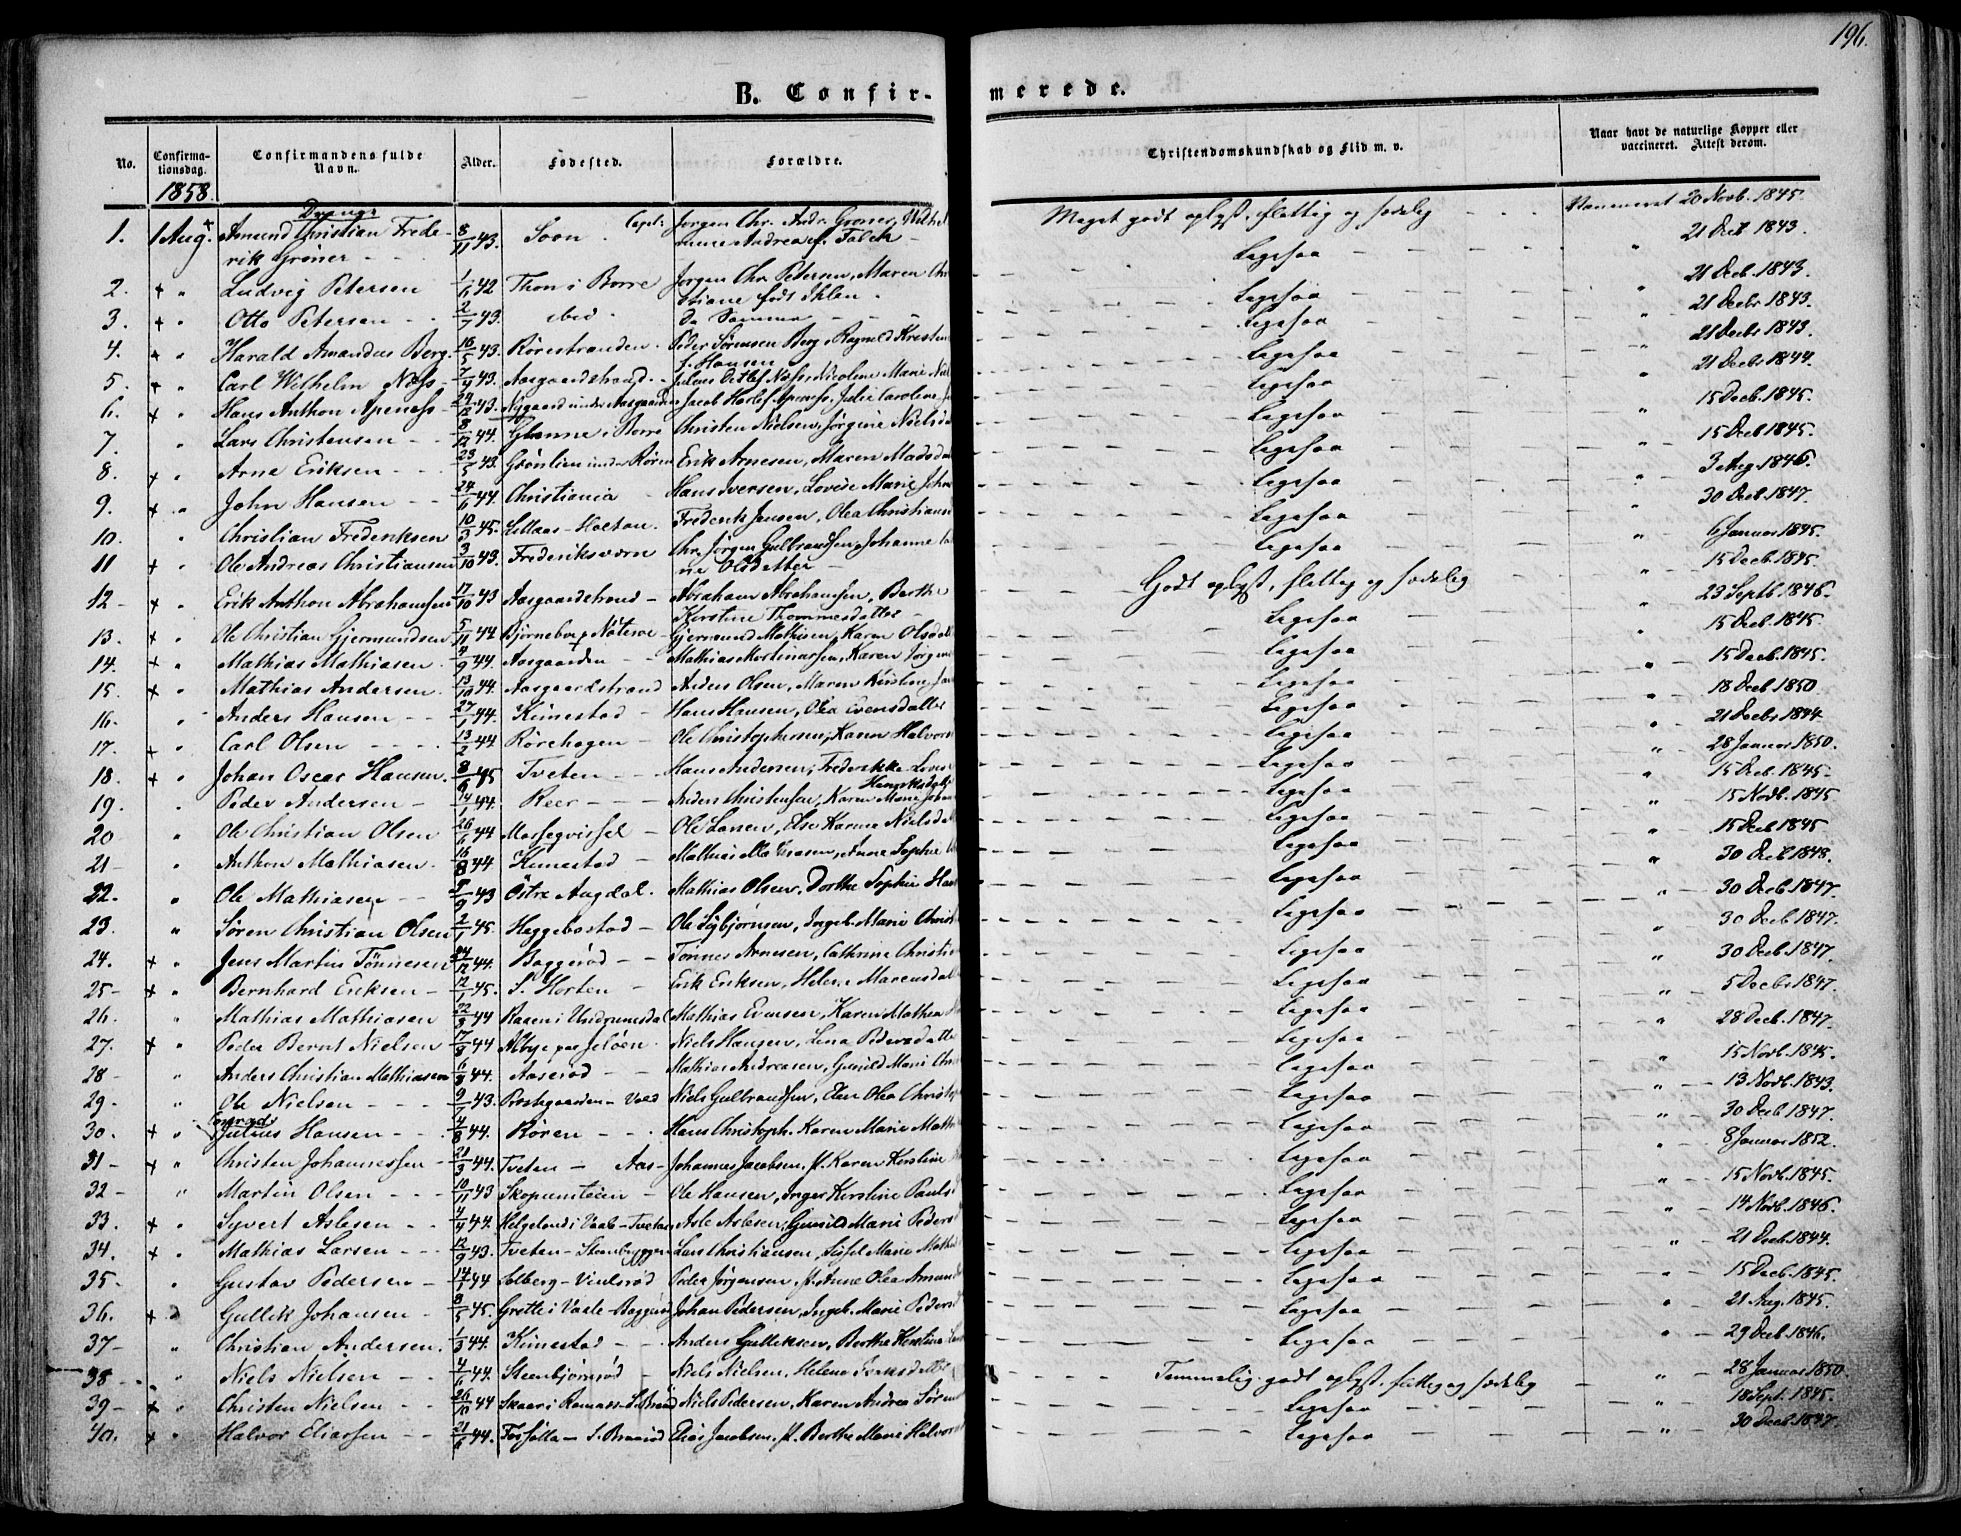 196.
B. Confirmerede.
No. Confirmationsdag. Confirmandens fulde Navn. Alder. Fødested. Forældre. Christendomskundskab og Flid m. v. Naar havt de naturlige Kopper eller vaccineret. Attest derom.
1858.
Drenge
1. 1 Aug. Amund Christian Frede- 8/11 43. Soon. Capt. Jørgen Chr. Andr. Grøner, Wilhel Meget godt oplyst, flittig og sædelig 20 Novb. 1845.
rik Grøner mine Andrea f. Falck
2. + " Ludvig Petersen 1/1 42 Thon i Borre Jørgen Chr. Petersen, Maren Chr Ligesaa " 21 Dec. 1843.
stiane født Ihlen
3. + " Otto Petersen 2/7 43. ibid. de Samme Ligesaa " 21 Decb. 1843.
4. + " Harald Amandus Berg. 16/5 43. Rørestranden. Peder Sørensen Berg, Ragnild Kirstine Ligesaa " 21 Decbr 1843.
Hansen
5. + " Carl Wilhelm Næss 7/9 43. Aasgaardstrand. Julius Detlef Næss, Nicoline Marie Niel Ligesaa " 21 Decbr 1843.
6. + " Hans Anthon Apenæss 29/12 43. Nygaard under Aasgaarden Jacob Apenæss, Julie Caroline Ligesaa " 21 Decbr 1844.
7. " Lars Christensen 8/12 44. Glenne i Borre Christen Nielsen, Jørgine Nielsda Ligesaa 15 Decb. 1845.
8. + " Arne Eriksen 23/5 43. Grønlien under Røren Erik Arnesen, Maren Madsda Ligesaa 15 Decb 1845.
9. + " John Hansen 24/6 44. Christiania Hans Iversen, Lovise Marie Ligesaa " 3 Aug. 1846.
10. " Christian Frederiksen 10/3 45. Holtan. Frederik Jensen, Olea Christianse Ligesaa 30 Decb. 1847.
11 + " Ole Andreas Christiansen 3/10 43. Frederiksværn Chr. Jørgen Gulbrandsen, Johanne Ligesaa " 6 Januar 1845.
ne Olsdatter
12 + " Erik Anthon Abrahamsen 17/10 43 Aasgaardstrand Abraham Abrahamsen, Berthe Godt oplyst, flittig og sædelig 15 Decb. 1845.
Kirstine Thommesdatter
13. + " Ole Christian Gjermundsen 5/11 44 Bjørneborg Nøterø Gjermund Mathisen, Karen Olsdat Ligesaa " 23 Septb. 1846.
14. + " Mathias Mathiasen 4/9 44. Aasgaarden Mathias Mortinussen, Karen Jørgens Ligesaa " 15 Decb. 1845
15. + " Mathias Andersen 13/10 44. Aasgaardstrand Anders Olsen, Maren Kirstine Ligesaa " 15 Decb. 1845.
16. " Anders Hansen 27/1 44. Kimestad Hans Hansen, Olea Evensdatter Ligesaa " 18 Decb 1850
17. + " Carl Olsen 13/2 44 Rørehagen Ole Christophersen, Karen Halvors Ligesaa " 21 Decbr 1844
18. + " Johan Oscar Hansen. 8/6 45 Tveten Hans Andersen, Frederikke Lovise Ligesaa " 28 Januar 1850.
Henriksdatter
19. " Peder Andersen 14/1 44. Reer Anders Christensen, Karen Marie Ligesaa " 15 Decb. 1845
20 " Ole Christian Olsen 26/6 44 Ole Larsen, Else Karine Nielsdat Ligesaa " 15 Novb. 1845
21 " Anthon Mathiasen. 16/8 44. Kimestad Mathias Mathiasen, Anne Sophie Ligesaa " 15 Decb 1845
22. " Ole Mathiasen 43 Østre Augdal. Mathias Olsen, Dorthe Sophie Han Ligesaa " 30 Decb 1848.
23. " Søren Christian Olsen 2/1 45. Heggebostad Ole Sigbjørnsen, Ingeb. Marie Christ Ligesaa " 30 Decb. 1847.
24. + " Jens Martin Tönnesen 24/12 44. Baggerød Tönnes Arnesen, Cathrine Christia Ligesaa 30 Decb 1847.
25 + " Bernhard Eriksen 12/1 45. S. Horten Erik Eriksen, Helene Marensdat Ligesaa 30 Decb 1847.
26. " Mathias Mathiasen 22/3 44 Raaen i Undrumsdal Mathias Evensen, Karen Mathea Ligesaa " 5 Decbr 1847.
27. + " Peder Bernt Nielsen 17/8 44 Alby paa Jeløen. Niels Hansen, Lena Pedersdatte Ligesaa " 28 Decb. 1847.
28 " Anders Christian Mathiasen 6/8 44. Aaserød Mathias Andreasen, Gunild Marie Chri Ligesaa " 15 Novb. 1845.
29 " Ole Nielsen 9/7 43. Niels Gulbrandsen, Elen Olea Christop Ligesaa " 13 Novb. 1843.
30. + " Conrad Julius Hansen 4/8 44. Røren Hans Christoph. Karen Marie Math Ligesaa " 30 Decb. 1847.
31 + " Christen Johannessen 21/3 44. Tveten Aas Johannes Jacobsen, Karen Kirstine Ligesaa " 8 Januar 1852.
32 " Martin Olsen 10/11 43 Ole Hansen, Inger Kirstine Pauls Ligesaa 15 Novb. 1845.
33. + " Syvert Aslesen 4/4 44. Helgeland i Vaale Tveten Asle Aslesen, Gunild Marie Peders Ligesaa " 14 Novb. 1846.
34. + " Mathias Larsen 12/9 43. Tveten Lars Christiansen, Sissel Marie Mathia Ligesaa " 21 Decb. 1844.
35 " Gustav Pedersen 14/1 44 Solberg Peder Jørgensen, Anne Olea Amund Ligesaa " 15 Decb. 1845.
36. + " Gullik Johansen 8/5 45. Grette i Vaale Baggerød Johan Pedersen, Ingeb. Marie Peders Ligesaa " 21 Aug. 1845.
37 " Christian Andersen. 1/3 44. Kimestad Anders Gulliksen, Berthe Kirstine Ligesaa " 29 Decb 1846.
38 " Niels Nielsen 4/6 44. Steenbjørnrød Niels Nielsen, Helene Temmelig godt oplyst, flittig og sædelig " 28 Januar 1850.
39 + " Christen Nielsen 26/10 44 Skaar i Ramnæs Niels Pedersen, Karen Andrea Søren Ligesaa " 18 Sept. 1845.
40. + " Halvor Eliassen 21/6 44. Elias Jacobsen, Berthe Marie Halvors Ligesaa " 30 Decb. 1847.